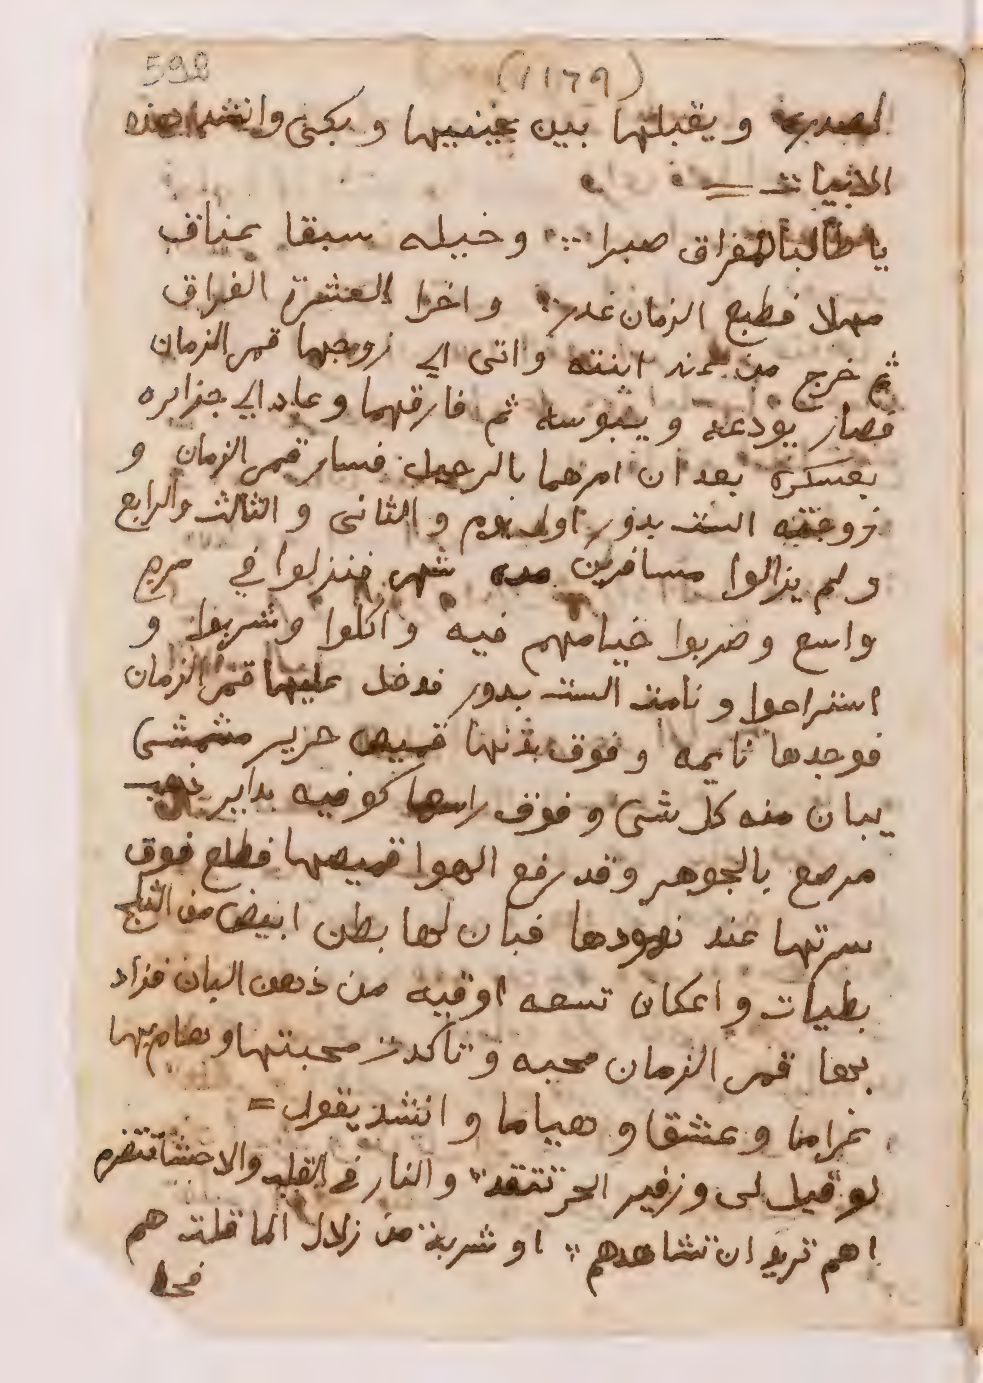 598 (١١٦٩)
لصدره و يقبلها بين عينيها و بكى وانشد هذه
الابيات =
يا طالبا للفراق صبرا ∴ وحيله سبقا عناق
مهلا فطبع الزمان غدر ∴ واخرا العشرة الفراق
ثم خرج من عند ابنته واتى الي زوجها قمر الزمان
فصار يودعه و يبوسه ثم فارقهما وعاد الي جزايره
بعسكره بعد ان امرهما بالرحيل فسار قمر الزمان و
زوجته الست بدور اول يوم و الثانى و الثالث والرابع
و لم يزالوا مسافرين مده شهر فنزلوا في مرج
واسع وضربوا خيامهم فيه واكلوا وشربوا و
استراحوا و نامت الست بدور فدخل عليها قمر الزمان
فوجدها نايمه وفوق بدنها قميص حرير مشمشى
يبان منه كل شى وفوق راسها كوفيه بداير ذهب
مرصع بالجوهر وقد رفع الهوا قميصها فطلع فوق
سرتها عند نهودها فبان لها بطن ابيض من الثلج
بطيات و اعكان تسعه اوقيه من دهن البان فزاد
بها قمر الزمان محبه وتاكدت محبتها وهام بها
غراما وعشقا و هياما و انشد يقول =
لو قيل لى وزفير الحر تتقد ∴ والنار فى القلب والاحشا تضرم
اهم تريد ان تشاهدهم ∴ او شربة من زلال الما قلت هم